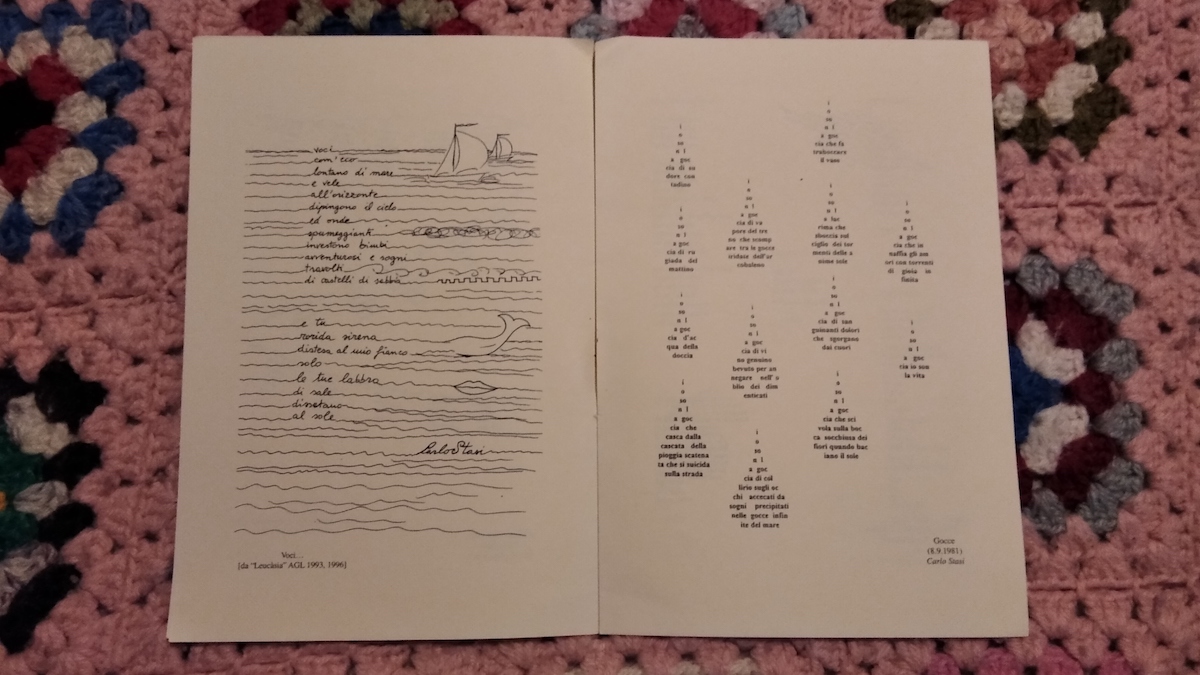 voci
com'eco
lontano di mare
e vele
all'orizzonte
dipingono il cielo
ed onde
spumeggianti
investono bimbi
avventurosi e sogni
travolti
di castelli di sabbia
e tu
rorida sirena
distesa al mio fianco
solo
le tue labbra
di sale
dissetano
al sole
CarloStasi
Voci...
[da "Leucàsia" AGL 1993, 1996]
i
o
so
n l
a goc
cia di su
dore con
tadino
i
o
so
n l
a goc
cia di ru
giada del
mattino
i
o
so
n l
a goc
cia d'ac
qua della
doccia
i
o
so
n l
a goc
cia che
casca dalla
cascata della
pioggia scatena
ta che si suicida
sulla strada
i
o
so
n l
a goc
cia di va
pore del tre
no che scomp
are tra le gocce
iridate dell'ar
cobaleno
i
o
so
n l
a goc
cia di vi
no genuino
bevuto per an
negare nell'o
blio dei dim
enticati
i
o
so
n l
a goc
cia di col
lirio sugli oc
chi accecati da
sogni precipitati
nelle gocce infin
ite del mare
i
o
so
n l
a goc
cia che fa
traboccare
il vaso
i
o
so
n l
a
rima che
sboccia sul
ciglio dei tor
menti delle a
nime sole
i
o
so
n l
a goc
cia di san
guinanti dolori
che sgorgano
dai cuori
i
o
so
n l
a goc
cia che sci
vola sulla boc
ca socchiusa dei
fiori quando bac
iano il sole
i
o
so
n l
a goc
cia che in
naffia gli am
ori con torrenti
di gioia in
finita
i
o
so
n l
a goc
cia io son
la vita
Gocce
(8.9.1981)
Carlo Stasi